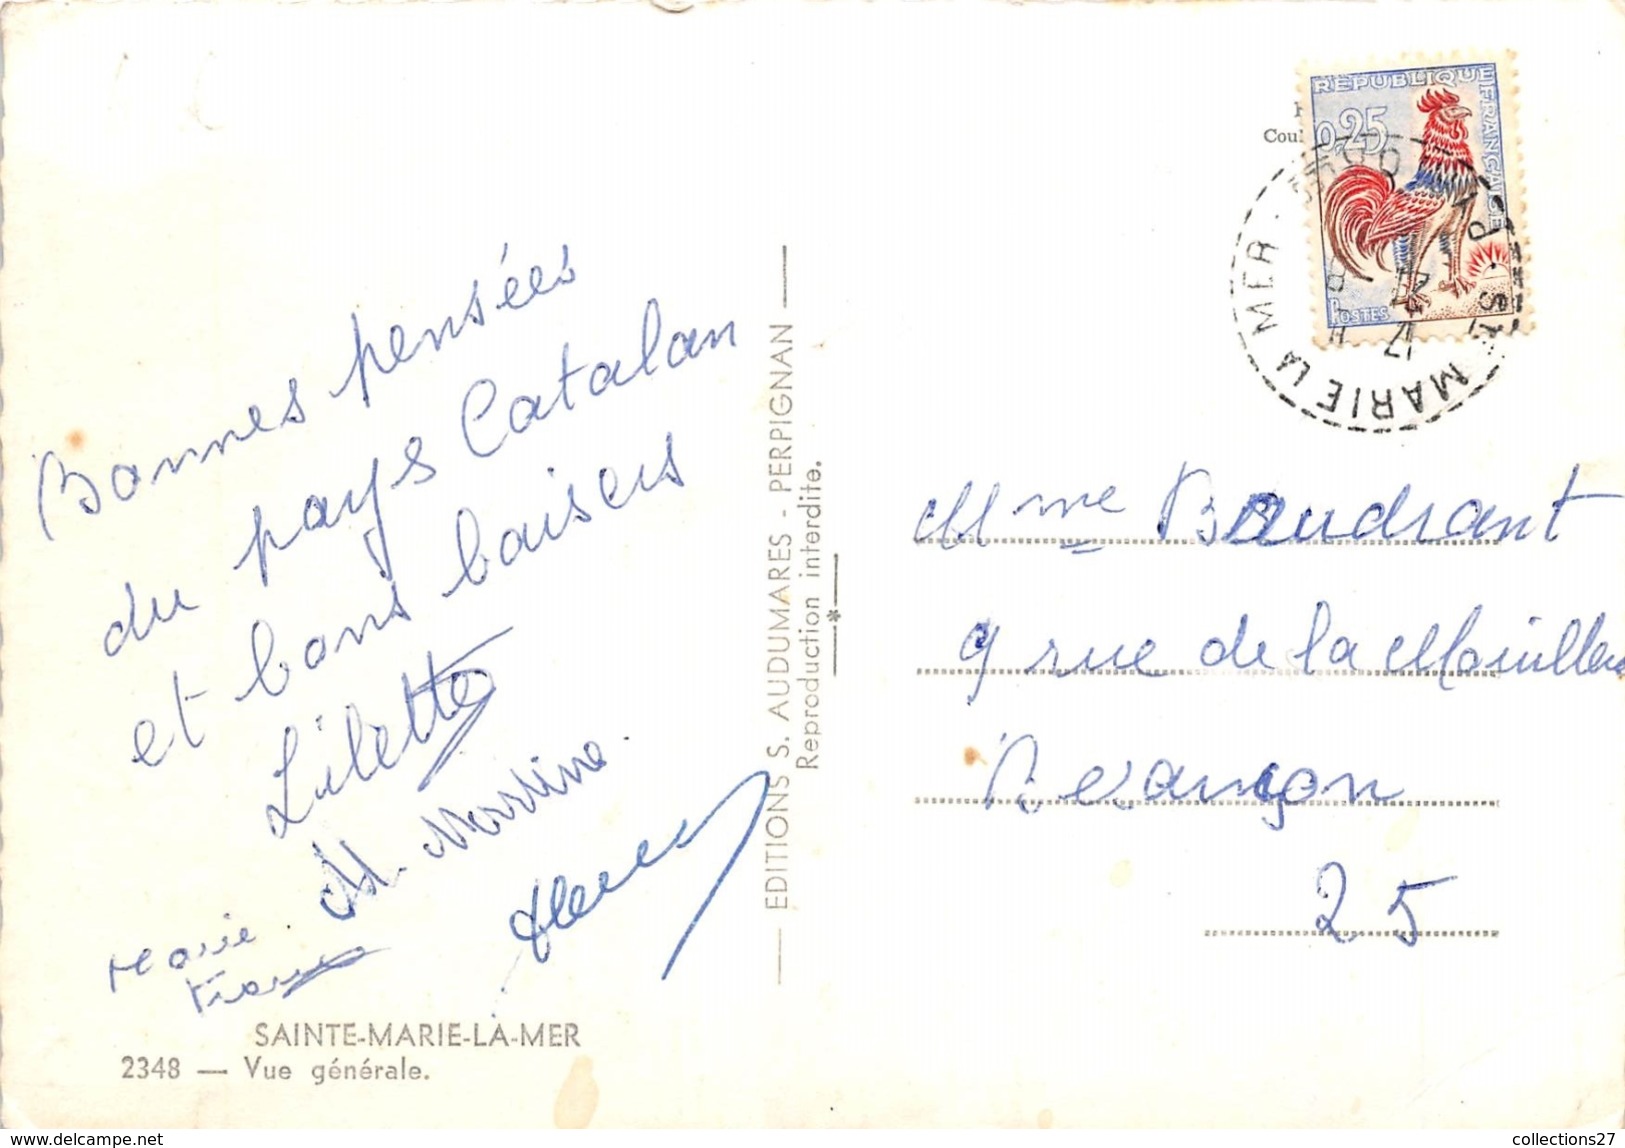 Bonnes pensées
du pays Catalan
et bons baisers
Lilette
M. Martine.
Marie
SAINTE-MARIE-LA-MER
2348 — Vue générale.
EDITIONS S. AUDUMARES - PERPIGNAN
Reproduction interdite.
REPUBLIQUE FRANÇAISE
0,25
POSTES
STE MARIE LA MER
17
Mme Baudrant
9 rue de la Mouillère
Besançon
25
collections27